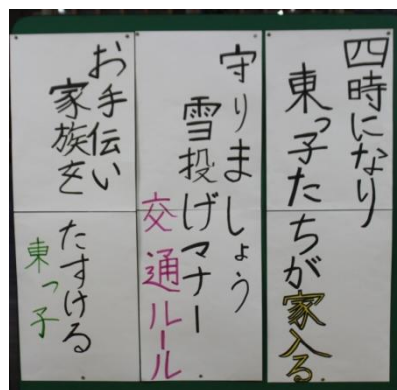 四時になり
東っ子たちが家入る
守りましょう
雪投げマナー
交通ルール
お手伝い
家族を
たすける
東っ子